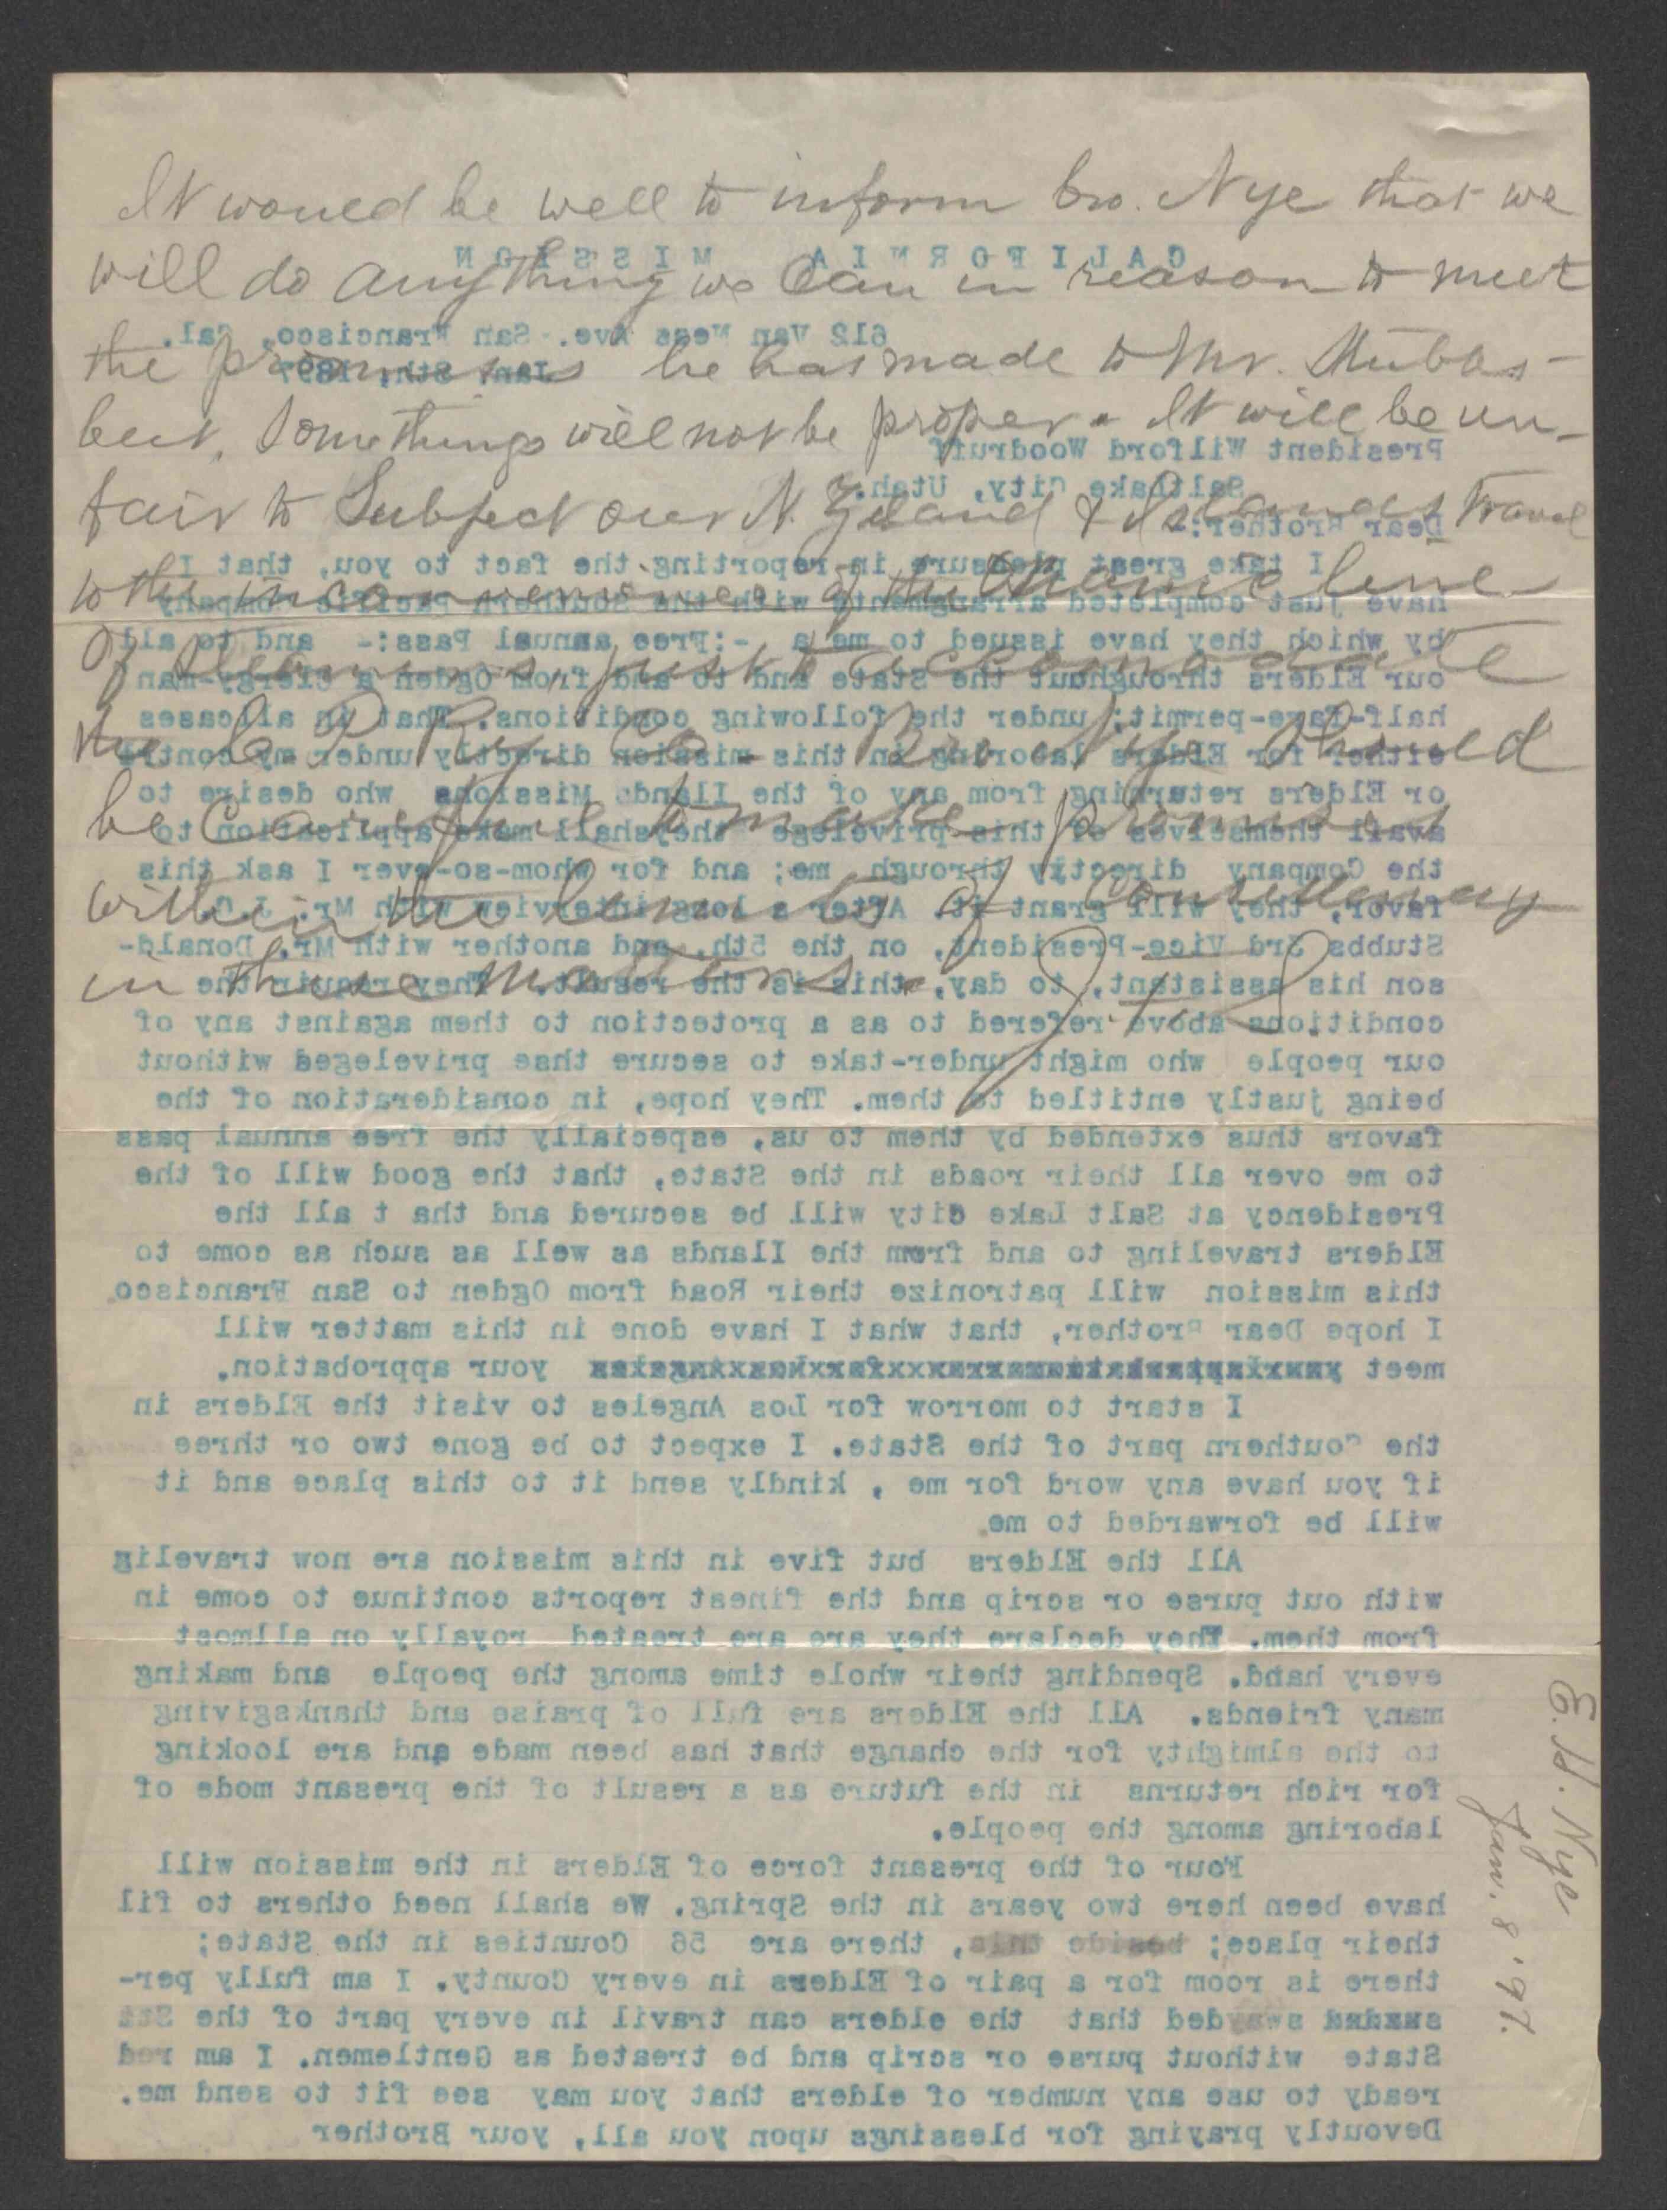 It would be well to inform bro. Nye that we
will do anything we Can in reason to meet
the promises he has made to Mr. Stubbs-
but, Some things will not be proper. It will be un-
fair to Subject our N. Zealand & Islands Travel
to the inconvenience of the Oceanic line
Of Steamers, just to accomodate
the S. P. Ry Co. Bro Nye Should
be Careful to make promises
within the limits of Consistency
in these matters. J. F. S.
CALIFORNIA MISSION
612 Van Ness Ave. San Francisco, Cal.
Jan, 8th, 1897
President Wilford Woodruff
Saltlake City, Utah.
Dear Brother:-
I take great pleasure in reporting the fact to you, that I
have just completed arrangments with the Southern Pacific Company
by which they have issued to me a -:Free annual Pass:- and to all
our Elders throughout the State and to and from Ogden a Clergy-man
half-fare-permit; under the following conditions. That in all cases
either for Elders laboring in this mission directly under my contrl
or Elders returning from any of the Ilands Missions who desire to
avail themselves of this privelege they shall make application to
the Company directly through me; and for whom-so-ever I ask this
favor, they will grant it. After a long interview with Mr. J.C.
Stubbs 3rd Vice-President, on the 5th, and another with Mr. Donald-
son his assistant, to day, this is the result. They require the
conditions above refered to as a protection to them against any of
our people who might under-take to secure thse priveleged without
being justly entitled to them. They hope, in consideration of the
favors thus extended by them to us, especially the free annual pass
to me over all their roads in the State, that the good will of the
Presidency at Salt Lake City will be secured and tha t all the
Elders traveling to and from the Ilands as well as such as come to
this mission will patronize their Road from Ogden to San Francisco.
I hope Dear Brother, that what I have done in this matter will
meet your approbation.
I start to morrow for Los Angeles to visit the Elders in
the Southern part of the State. I expect to be gone two or three
if you have any word for me , kindly send it to this place and it
will be forwarded to me.
All the Elders but five in this mission are now travelig
with out purse or scrip and the finest reports continue to come in
from them. They declare they are are treated royally on allmost
every hand. Spending their whole time among the people and making
many friends. All the Elders are full of praise and thanksgiving
to the almighty for the change that has been made and are looking
for rich returns in the future as a result of the presant mode of
laboring among the people.
Four of the presant force of Elders in the mission will
have been here two years in the Spring. We shall need others to fil
their place; beside this, there are 56 Counties in the State;
there is room for a pair of Elders in every County. I am fully per-
swayded that the elders can travil in every part of the Sta
State without purse or scrip and be treated as Gentlemen. I am red
ready to use any number of elders that you may see fit to send me.
Devoutly praying for blessings upon you all, your Brother
E. H. Nye
Jan. 8 '97.